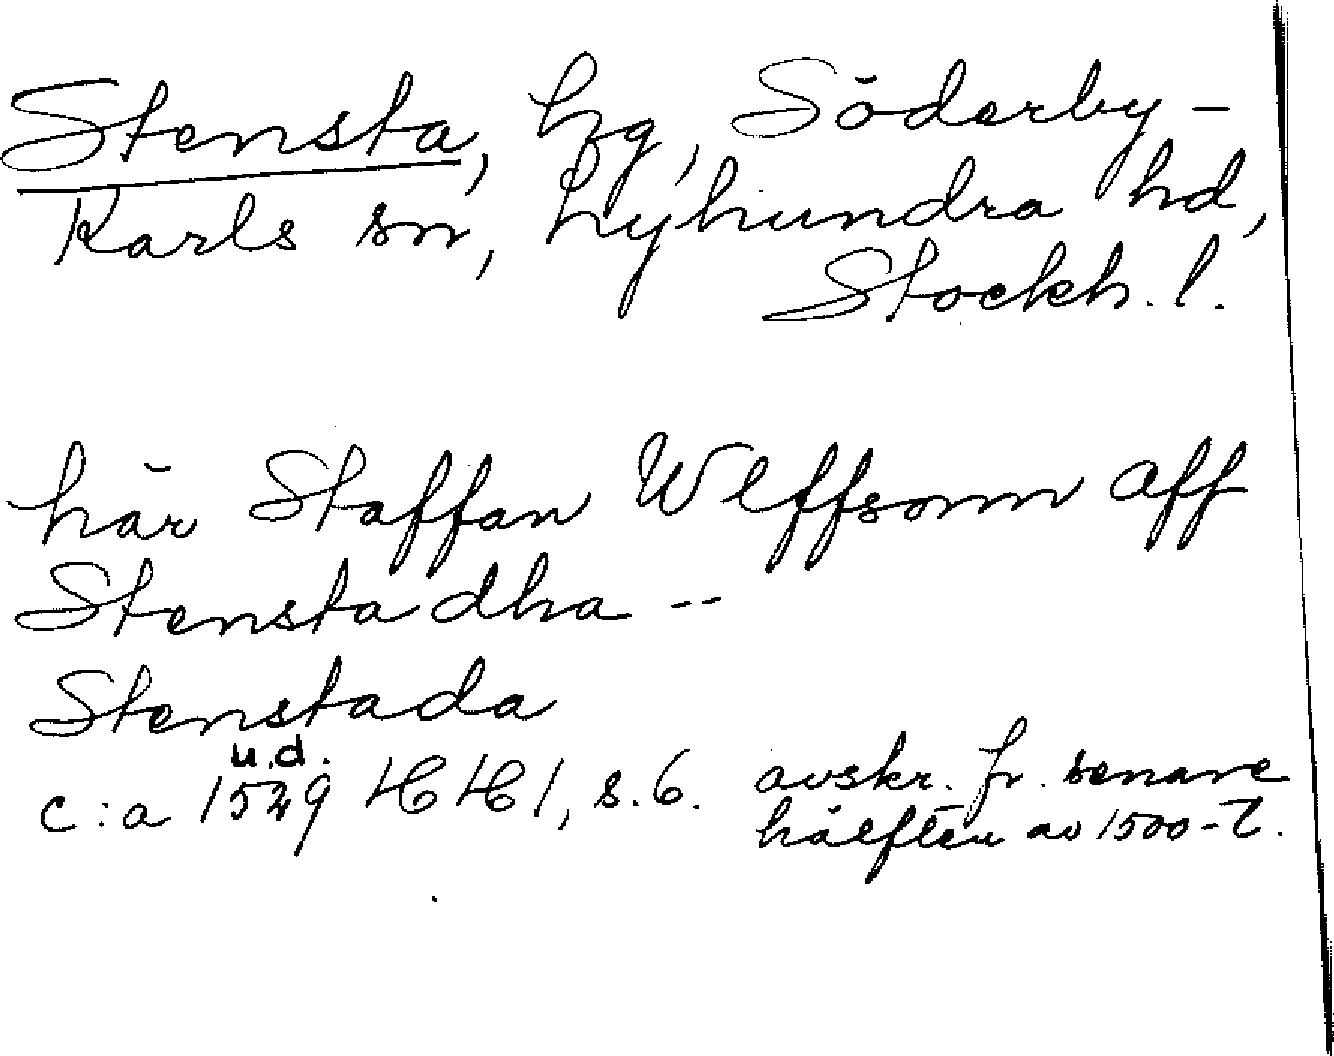 Stensta, hg, Söderby-
Karls sn, Lyhundra hd,
Stockh. l.
här Staffan Wlffsonn aff
Stenstadha --
Stenstada
u.d.
c:a 1529 HH 1, s. 6. avskr. fr. senare
hälften av 1500-t.